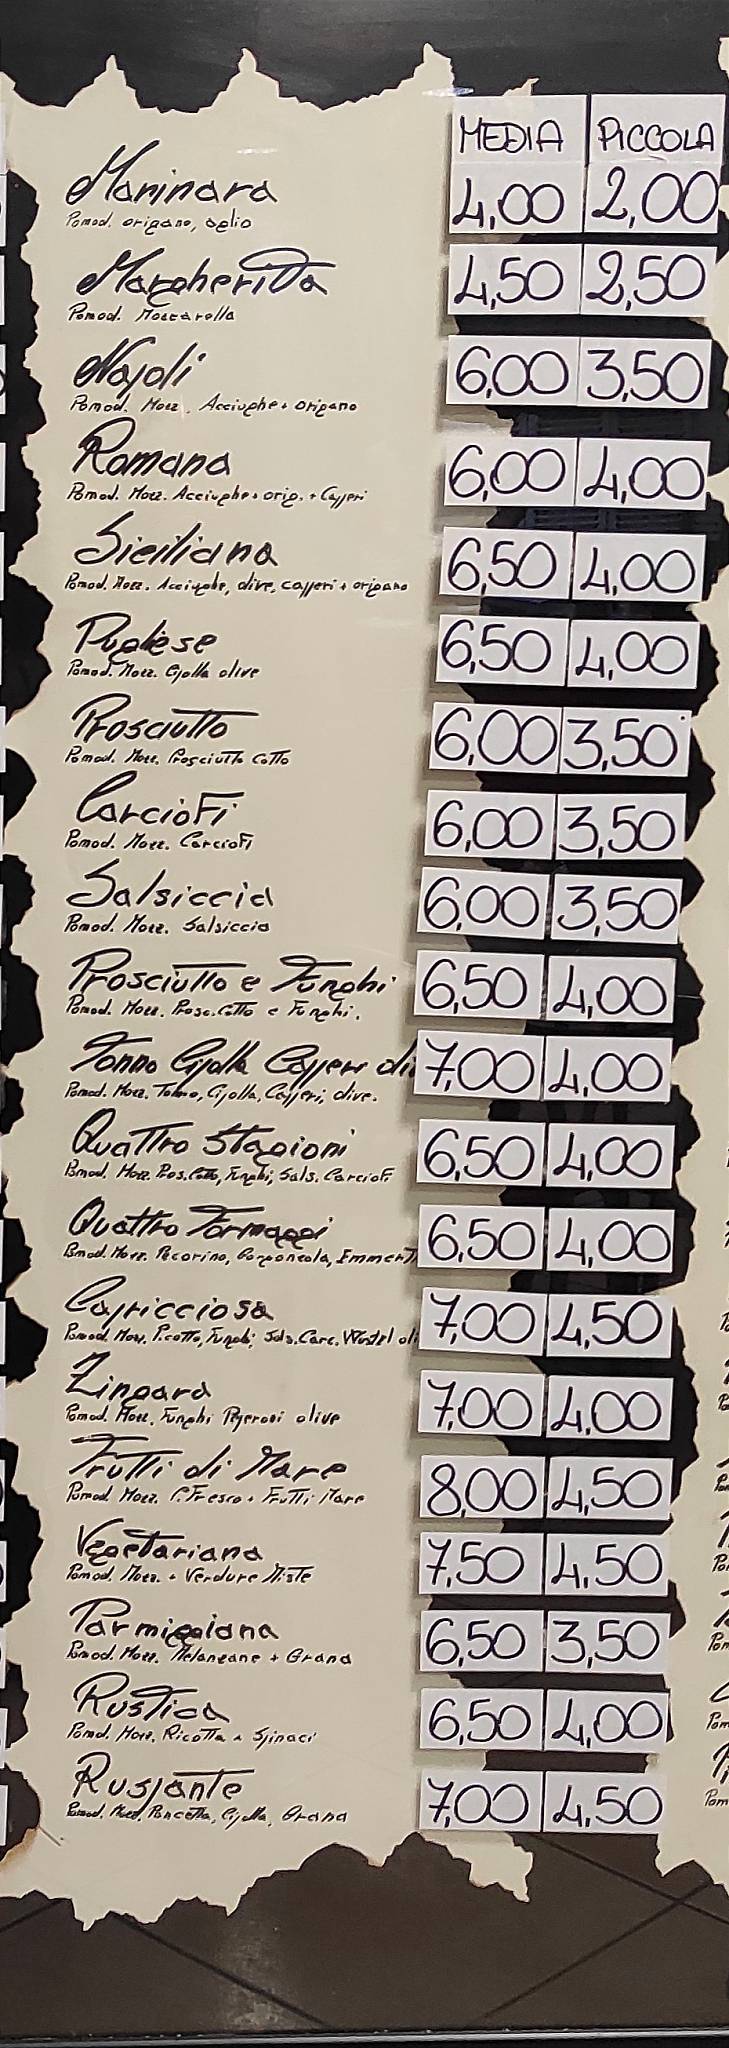 MEDIA PICCOLA
Marinara 4,00 2,00
Pomod. origano, aglio
Margherita 4,50 2,50
Pomod. Mozzarella
Napoli 6,00 3,50
Pomod. Mozz. Acciughe + origano
Romana 6,00 4,00
Pomod. Mozz. Acciughe + orig. + Capperi
Siciliana 6,50 4,00
Pomod. Mozz. Acciughe, olive, capperi + origano
Pugliese 6,50 4,00
Pomod. Mozz. Cipolla olive
Prosciutto 6,00 3,50
Pomod. Mozz. Prosciutto cotto
Carciofi 6,00 3,50
Pomod. Mozz. Carciofi
Salsiccia 6,00 3,50
Pomod. Mozz. Salsiccia
Prosciutto e Funghi 6,50 4,00
Pomod. Mozz. Prosc. Cotto e Funghi.
Tonno Cipolla Capperi oli 7,00 4,00
Pomod. Mozz. Tonno, Cipolla, Capperi, olive.
Quattro Stagioni 6,50 4,00
Pomod. Mozz. Pros. Cotto, Funghi, Sals. Carciofi
Quattro Formaggi 6,50 4,00
Pomod. Mozz. Pecorino, Gorgonzola, Emmert
Capricciosa 7,00 4,50
Pomod. Mozz. P.cotto, Funghi, Sals. Carc. Wustel oli
Zingara 7,00 4,00
Pomod. Mozz. Funghi Peperoni olive
Frutti di Mare 8,00 4,50
Pomod. Mozz. P. Fresco + Frutti Mare
Vegetariana 7,50 4,50
Pomod. Mozz. + Verdure Miste
Parmigiana 6,50 3,50
Pomod. Mozz. Melanzane + Grana
Rustica 6,50 4,00
Pomod. Mozz. Ricotta + Spinaci
Ruspante 7,00 4,50
Pomod. Mozz. Pancetta, Cipolla, Grana